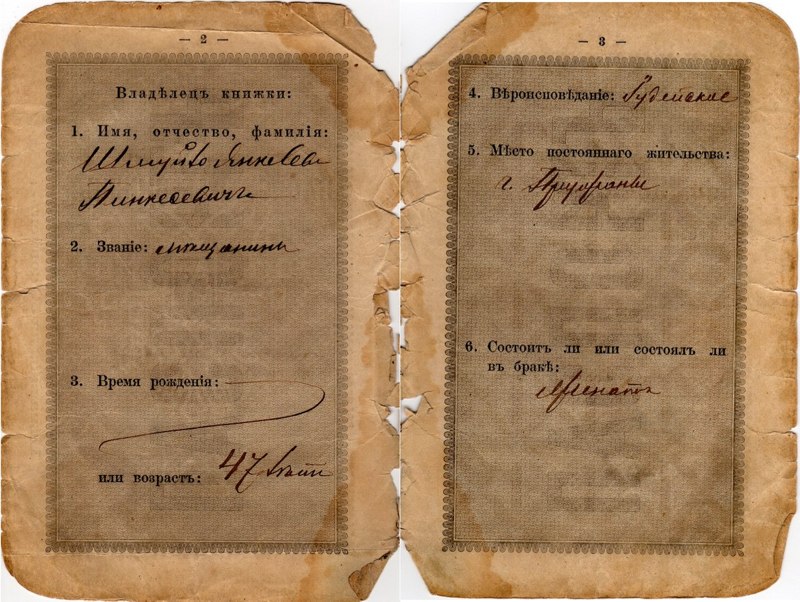 — 2 —
Владѣлецъ книжки:
1. Имя, отчество, фамилія:
Шмуйло Янкелевъ
Пинкесевичъ
2. Званіе: мѣщанинъ
3. Время рожденія:
или возрастъ: 47 лѣтъ
— 3 —
4. Вѣроисповѣданіе: Іудейское
5. Мѣсто постояннаго жительства:
г. Пружаны
6. Состоитъ ли или состоялъ ли
въ бракѣ:
Женатъ